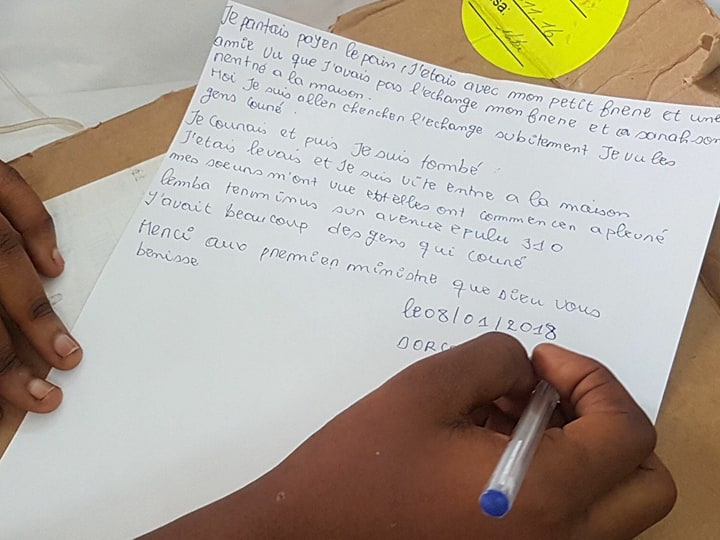 sa:
11.16
Je pantais payen le pain, J'etais avec mon petit fnene et une
amie Vu que J'avais pas l'echange mon fnene et sanah son
nentné a la maison.
Moi Je suis allen chenchen l'echange subitement Je vu les
gens couné.
Je counais et puis Je suis tombé.
J'etais levais et Je suis vite entne a la maison
mes soeuns m'ont vue et elles ont commencen a pleuné
lemba tenminus sun avenue epulu 310
Y'avait beaucoup des gens qui couné
Menci aux pnemien ministne que Dieu vous
benisse
le 08/01/2018
DORC